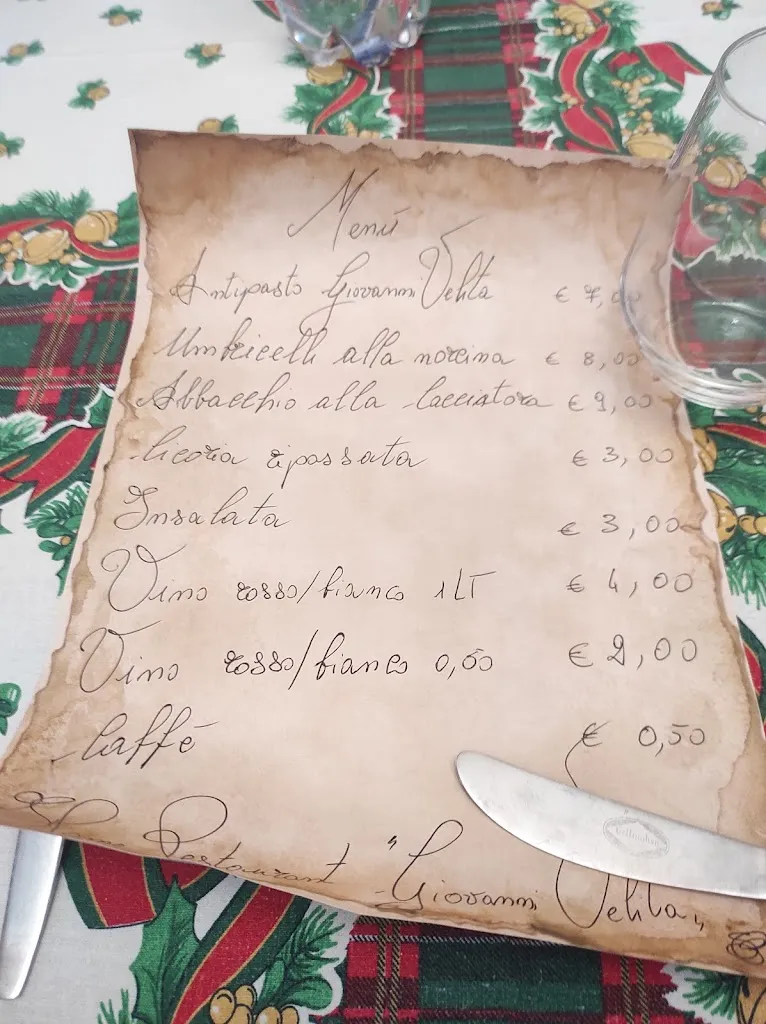 Menú
Antipasto Giovanni Velita € 7,00
Umbricelli alla norcina € 8,00
Abbacchio alla Cacciatora € 9,00
Cicoria ripassata € 3,00
Insalata € 3,00
Vino rosso/bianco 1 LT € 4,00
Vino rosso/bianco 0,50 € 2,00
Caffé € 0,50
Restaurant "Giovanni Velita"